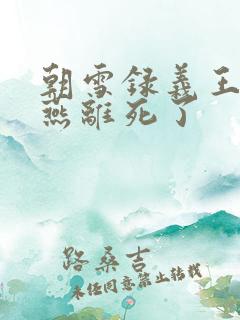 朝雪録義王
燕離死了
路桑吉
未经同意禁止转载